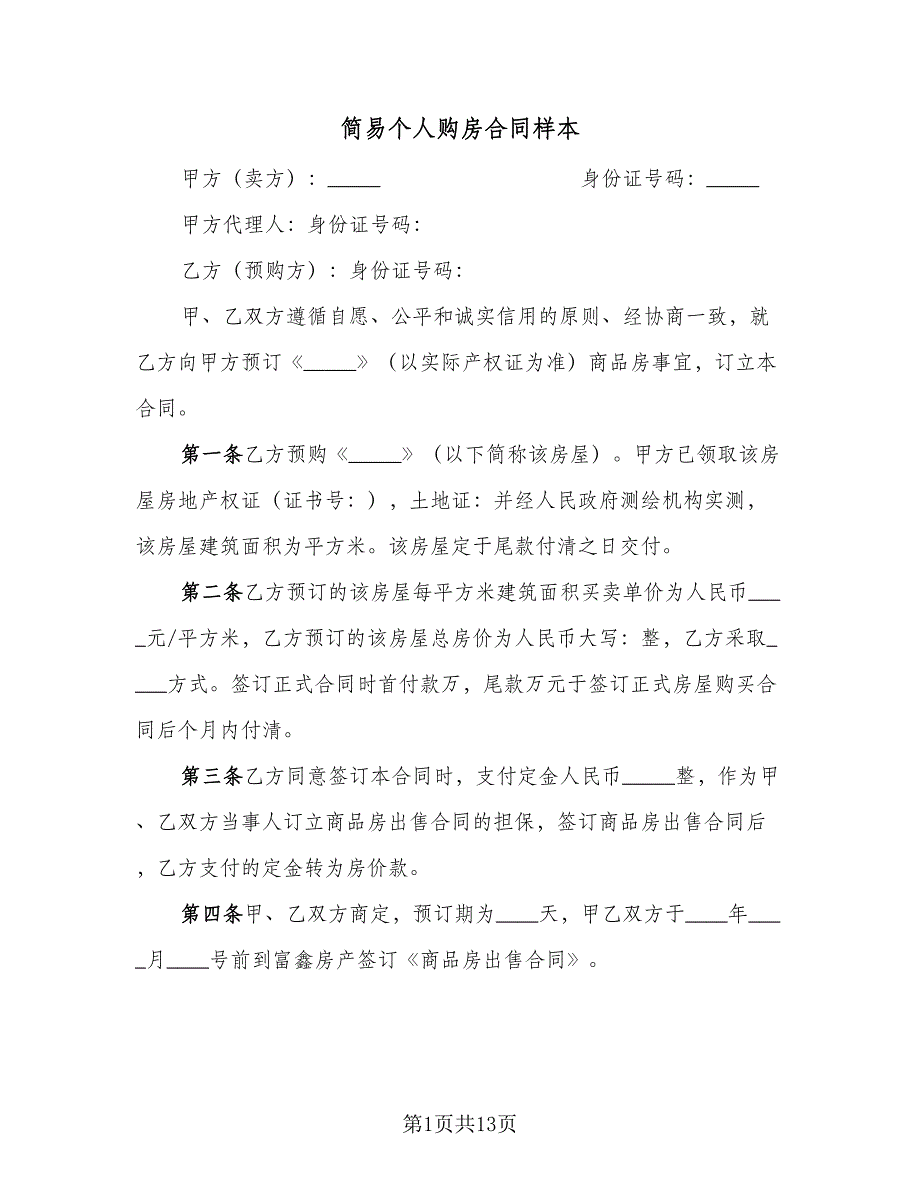 简易个人购房合同样本
甲方（卖方）：_____ 身份证号码：_____
甲方代理人：身份证号码：
乙方（预购方）：身份证号码：
甲、乙双方遵循自愿、公平和诚实信用的原则、经协商一致，就
乙方向甲方预订《_____》（以实际产权证为准）商品房事宜，订立本
合同。
第一条乙方预购《_____》（以下简称该房屋）。甲方已领取该房
屋房地产权证（证书号：），土地证：并经人民政府测绘机构实测，
该房屋建筑面积为平方米。该房屋定于尾款付清之日交付。
第二条乙方预订的该房屋每平方米建筑面积买卖单价为人民币___
_元/平方米，乙方预订的该房屋总房价为人民币大写：整，乙方采取_
___方式。签订正式合同时首付款万，尾款万元于签订正式房屋购买合
同后个月内付清。
第三条乙方同意签订本合同时，支付定金人民币_____整，作为甲
、乙双方当事人订立商品房出售合同的担保，签订商品房出售合同后
，乙方支付的定金转为房价款。
第四条甲、乙双方商定，预订期为____天，甲乙双方于____年___
_月____号前到富鑫房产签订《商品房出售合同》。
第1页共13页